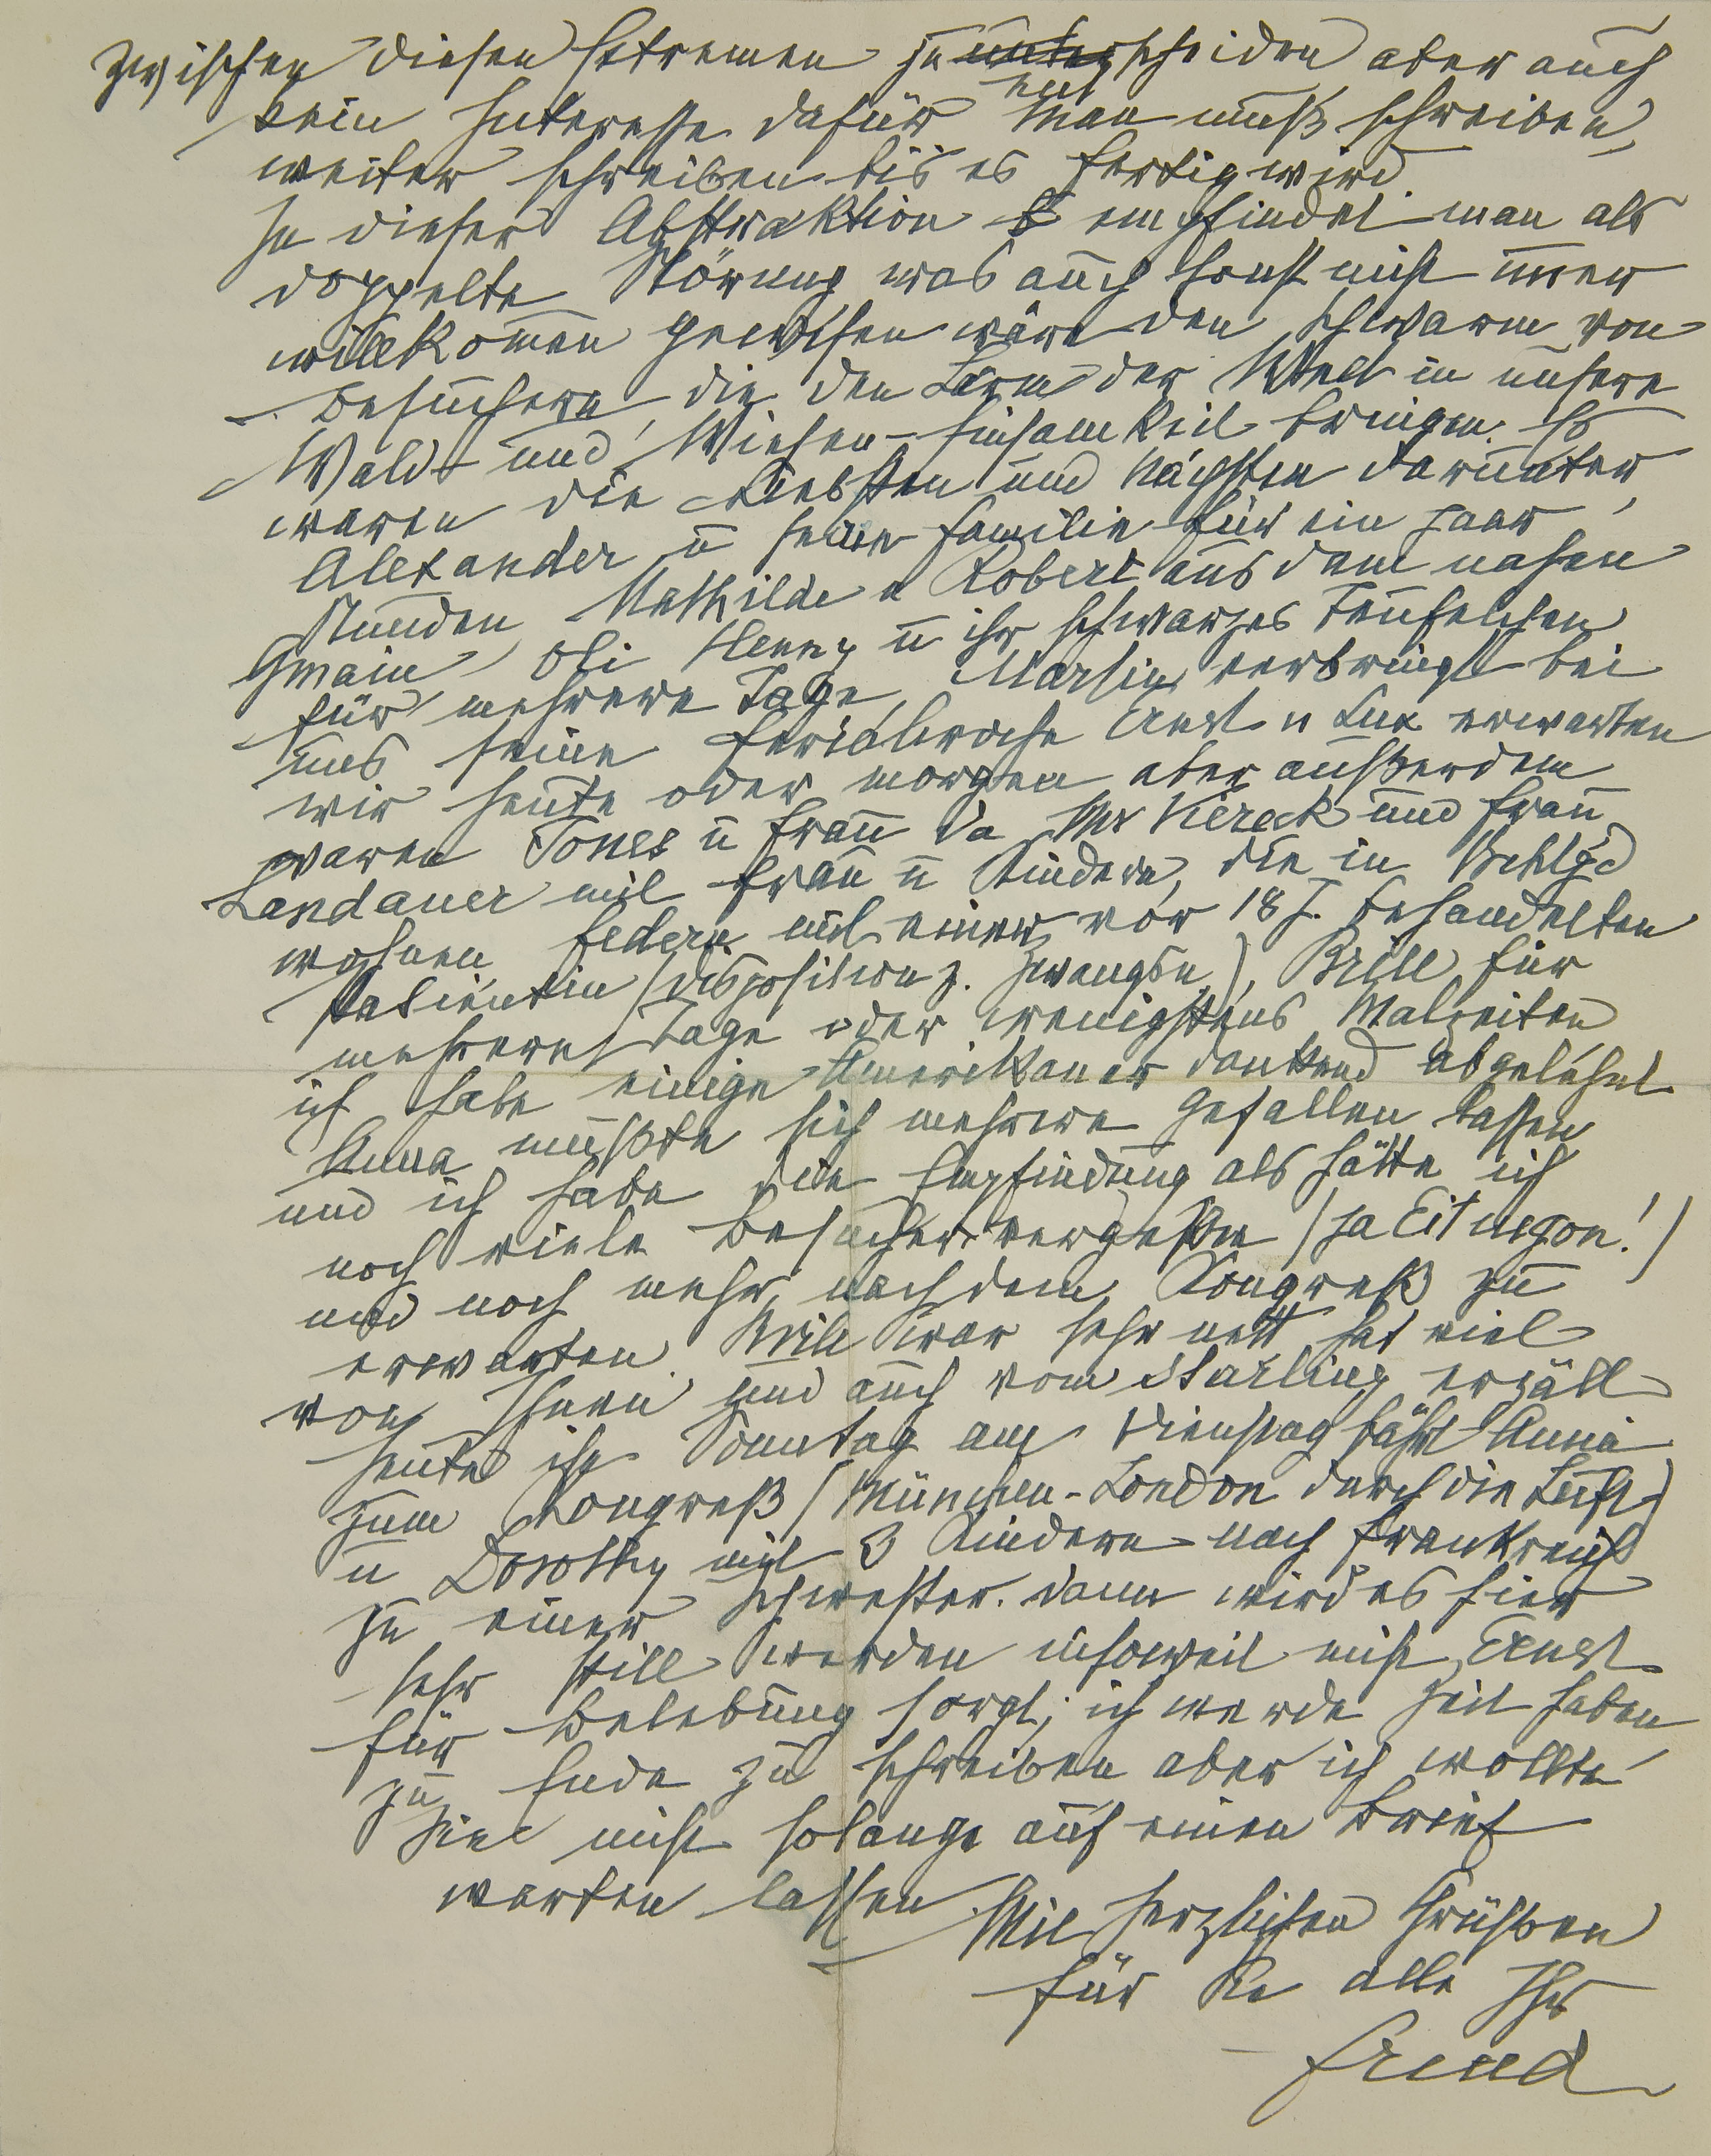 zwischen diesen Extremen zu unterscheiden aber auch
kein Interesse dafür man muß schreiben,
weiter schreiben bis es fertig wird.
In dieser Abstraktion empfindet man als
doppelte Störung was auch sonst nicht im̄er
willkom̄en gewesen wäre den Schwarm von
Besuchern, die den Lärm der Welt in unsere
Wald- und Wiesen-Einsamkeit bringen. Es
waren die Liebsten und Nächsten darunter,
Alexander u seine Familie für ein paar
Stunden, Mathilde u Robert aus dem nahen
Gmain, Oli Henny u ihr schwarzes Teufelchen
für mehrere Tage, Martin verbringt bei
uns seine Ferialwoche Ernst u Lux erwarten
wir heute oder morgen aber außerdem
waren Jones u Frau da Mr Viereck und Frau
Landauer mit Frau u Kindern, die in Bchtgd
wohnen Federn mit einer vor 18 J. behandelten
Patientin (Disposition z. Zwangsn.), Brill für
mehrere Tage oder wenigstens Malzeiten
ich habe einige Amerikaner dankend abgelehnt
Anna mußte sich mehrere gefallen lassen
und ich habe die Empfindung als hätte ich
noch viele Besucher vergeßen (ja Eitingon!)
und noch mehr nach dem Kongreß zu
erwarten. Brill war sehr nett hat viel
von Ihnen und auch vom Starling erzält
Heute ist Sonntag am Dienstag fährt Anna
zum Kongreß (München-London durch die Luft)
u Dorothy mit 3 Kindern nach Frankreich
zu einer Schwester. Dann wird es hier
sehr still werden insoweit nicht Ernst
für Belebung sorgt; ich werde Zeit haben
zu Ende zu schreiben aber ich wollte
Sie nicht solange auf einen Brief
warten lassen
Mit herzlichen Grüßen
für Sie alle Ihr
Freud